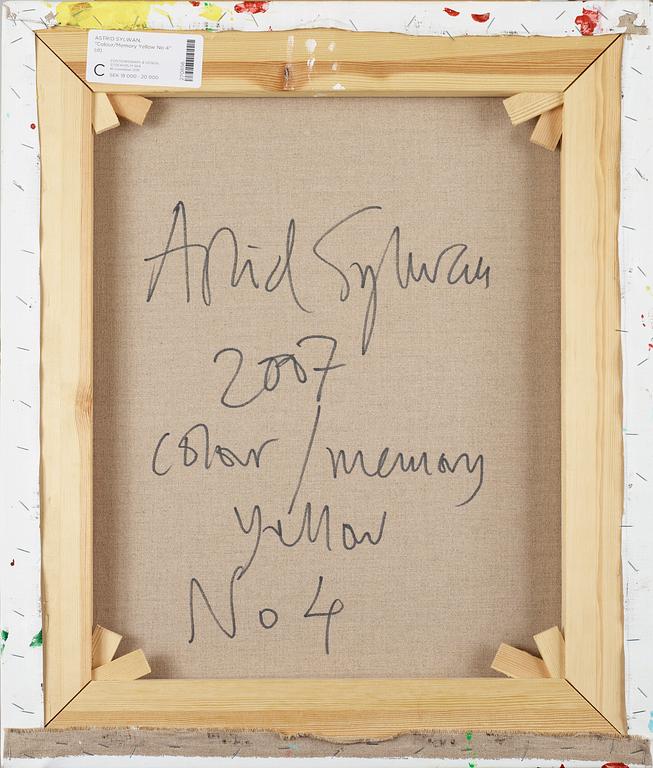 ASTRID SYLWAN,
"Colour/Memory Yellow No 4"
(d)
C
SEK 18 000 - 20 000
Astrid Sylwan
2007
colour/memory
yellow
No 4